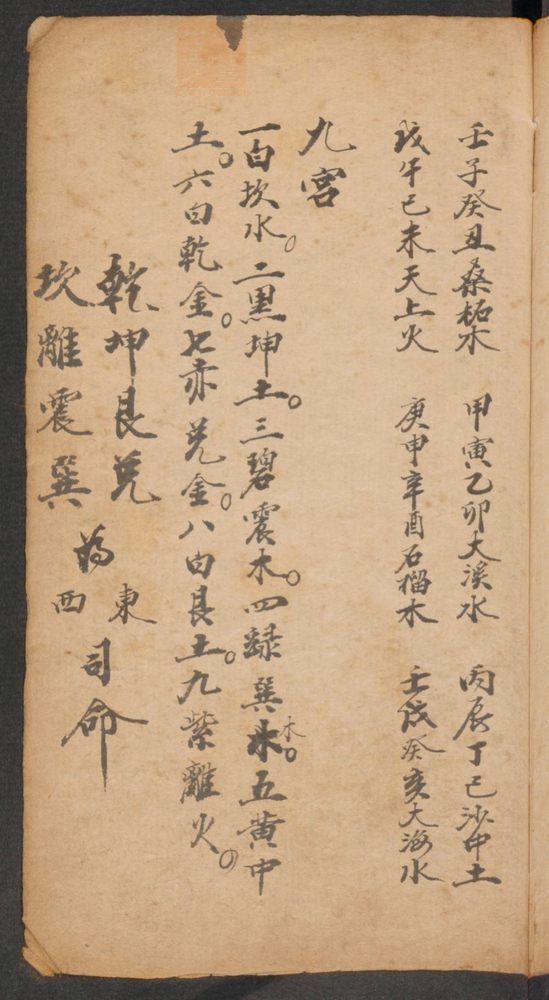 壬子癸丑桑柘木　甲寅乙卯大溪水　丙辰丁巳沙中土
戊午己未天上火　庚申辛酉石榴木　壬戌癸亥大海水
九宮
一白坎水。二黑坤土。三碧震木。四緑巽木。五黄中
土。六白乾金。七赤兌金。八白艮土。九紫離火。
乾坤艮兌
坎離震巽
為
東
西
司命